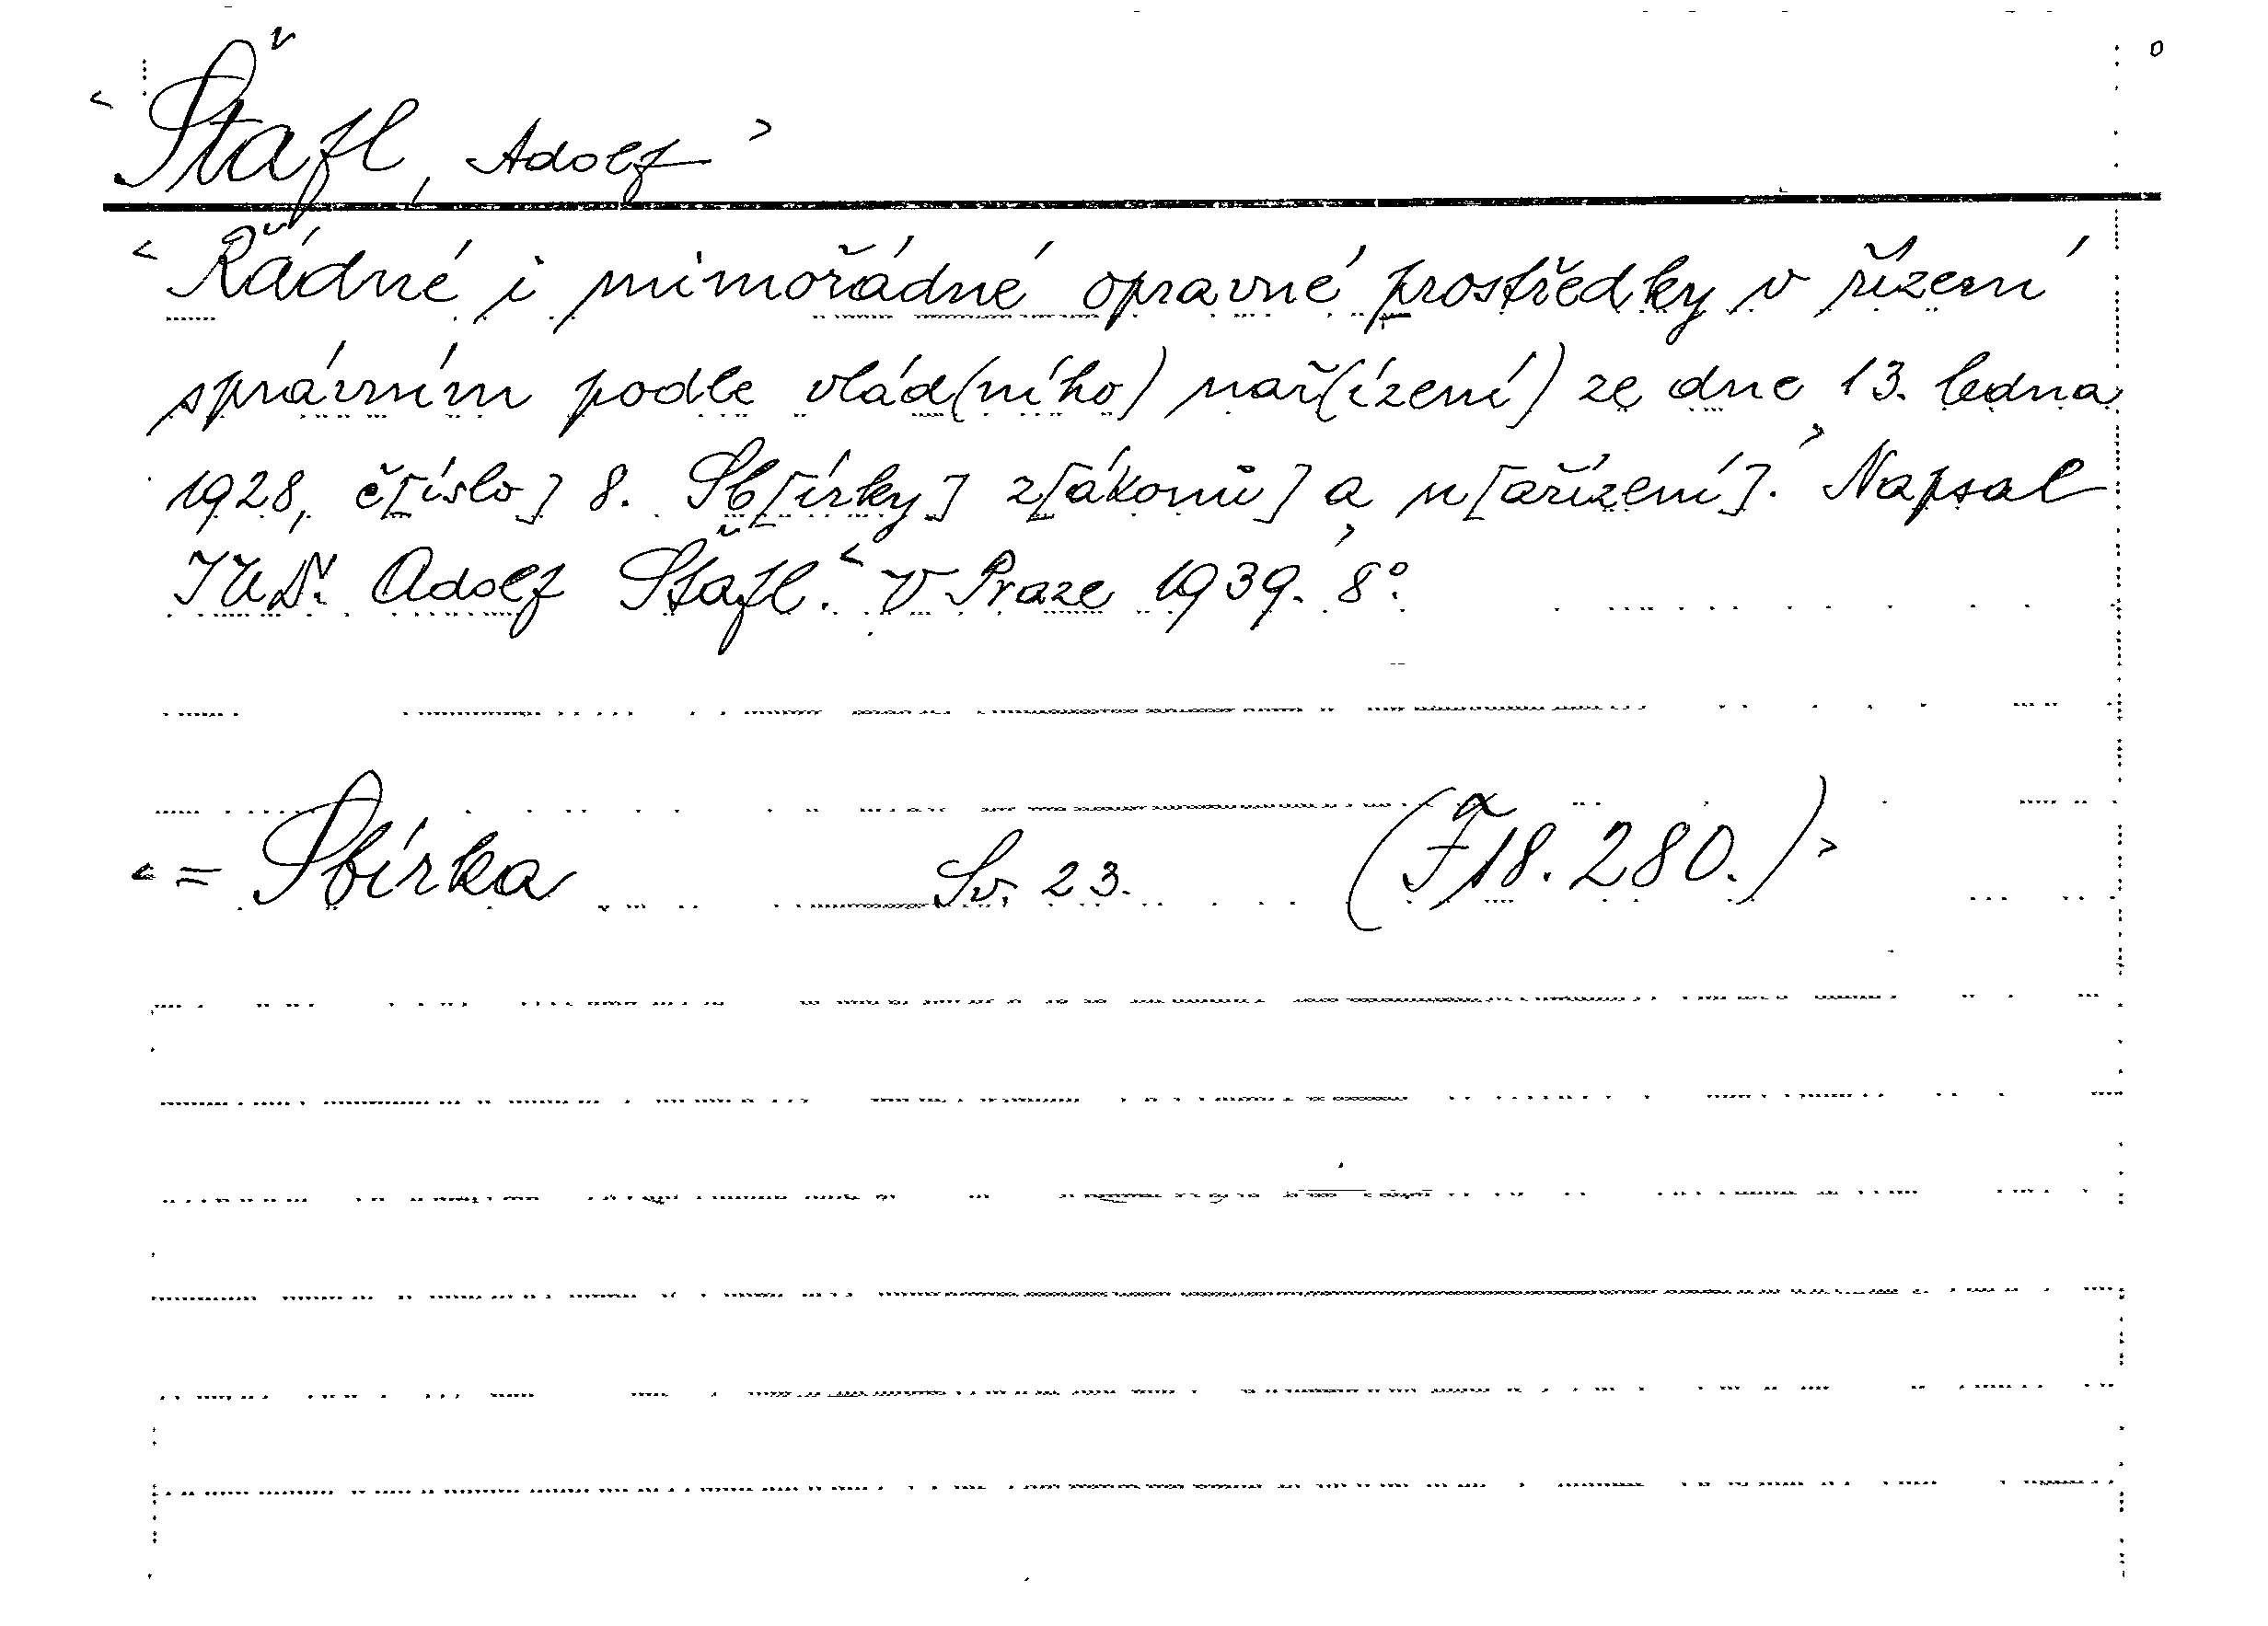 < Štafl, Adolf >
< Řádné i mimořádné opravné prostředky v řízení
správním podle vlád(ního) nař(ízení) ze dne 13. ledna
1928, č[íslo] 8. Sb[írky] z[ákonů] a n[ařízení]. > Napsal
JUDr. Adolf Štafl. < V Praze 1939. > 8°.
< = Sbírka Sv. 23. (F 18.280.) >